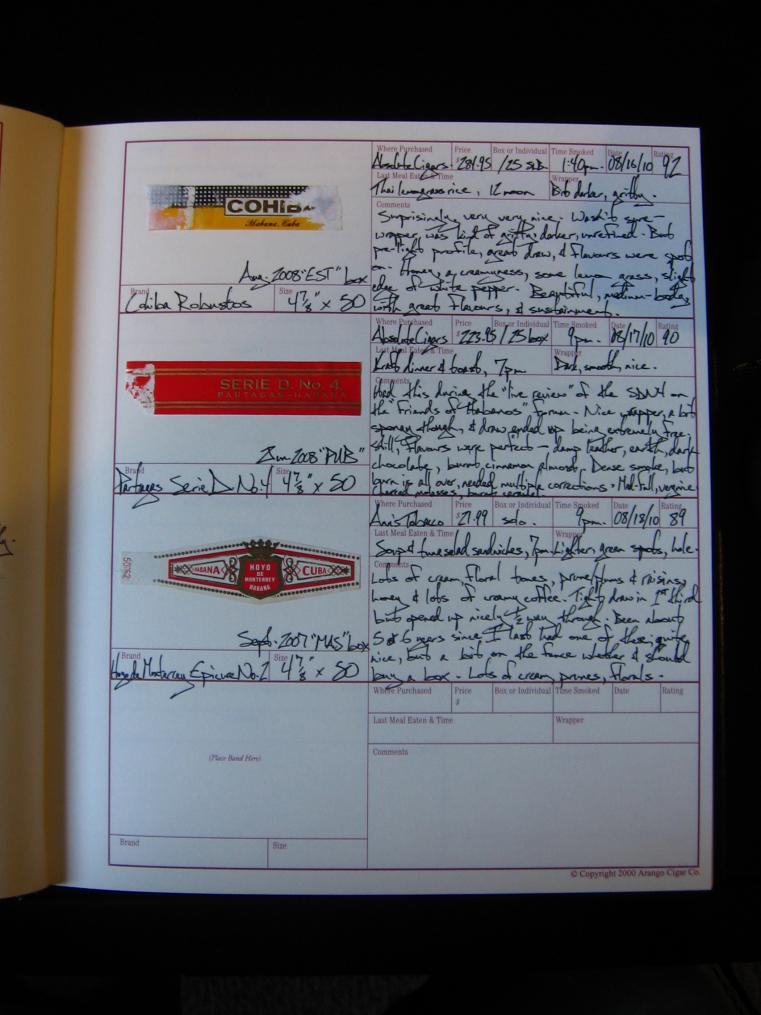 y.
COHIBA
Habana, Cuba
Aug. 2008 "EST" box
Brand
Size
Cohiba Robustos
4 7/8" x 50
Where Purchased
Price
Box or Individual
Time Smoked
Date
Rating
AbsoluteCigars.
$
/25 SLB
1:40pm.
08/16/10
92
Last Meal Eaten & Time
Wrapper
Thai lemongrass rice, 12 noon
Bit darker, gritty.
Comments
Surprisingly, very, very nice. Wasn't sure -
wrapper was kind of gritty, darker, unrefined. But
pre-light profile, great draw, & flavours were spot
on. Honey, creaminess, some lemon grass, slight
edge of white pepper. Beautiful, medium-bodied
with great flavours, & sustainment.
SERIE D. No. 4.
PARTAGAS - HABANA
Jun. 2008 "PUB"
Brand
Size
Partagas Serie D No.4
4 7/8" x 50
Where Purchased
Price
Box or Individual
Time Smoked
Date
Rating
AbsoluteCigars
$223.95
/25 box
9pm.
08/17/10
90
Last Meal Eaten & Time
Wrapper
Kraft dinner & toast, 7pm
Dark, smooth, nice.
Comments
Had this during the "live review" of the SDN4 on
the "Friends of Habanos" forum. Nice wrapper, a bit
spongy though, & draw ended up being extremely free.
Still, flavours were perfect - damp leather, earth, dark
chocolate, burnt cinnamon almost. Dense smoke, but
burn is all over, needed multiple corrections. Med-full,
charred molasses, burnt
50752
HABANA
HOYO
DE
MONTERREY
HABANA
CUBA
Sept. 2007 "MAS" box
Brand
Size
Hoyo de Monterrey Epicure No. 2
4 7/8" x 50
Where Purchased
Price
Box or Individual
Time Smoked
Date
Rating
Tobacco
$21.99
solo.
9pm.
08/18/10
89
Last Meal Eaten & Time
Wrapper
Soup & tuna salad sandwiches, 7pm
Lighter, green spots, hole.
Comments
Lots of cream, floral tones, prune/plums & raisins,
honey & lots of creamy coffee. Tight draw in 1st third
but opened up nicely 1/2 way through. Been about
5 or 6 years since I last had one of these; quite
nice, but a bit on the fence whether I should
buy a box. Lots of cream, prunes, florals.
(Place Band Here)
Brand
Size
Where Purchased
Price
$
Box or Individual
Time Smoked
Date
Rating
Last Meal Eaten & Time
Wrapper
Comments
© Copyright 2000 Arango Cigar Co.